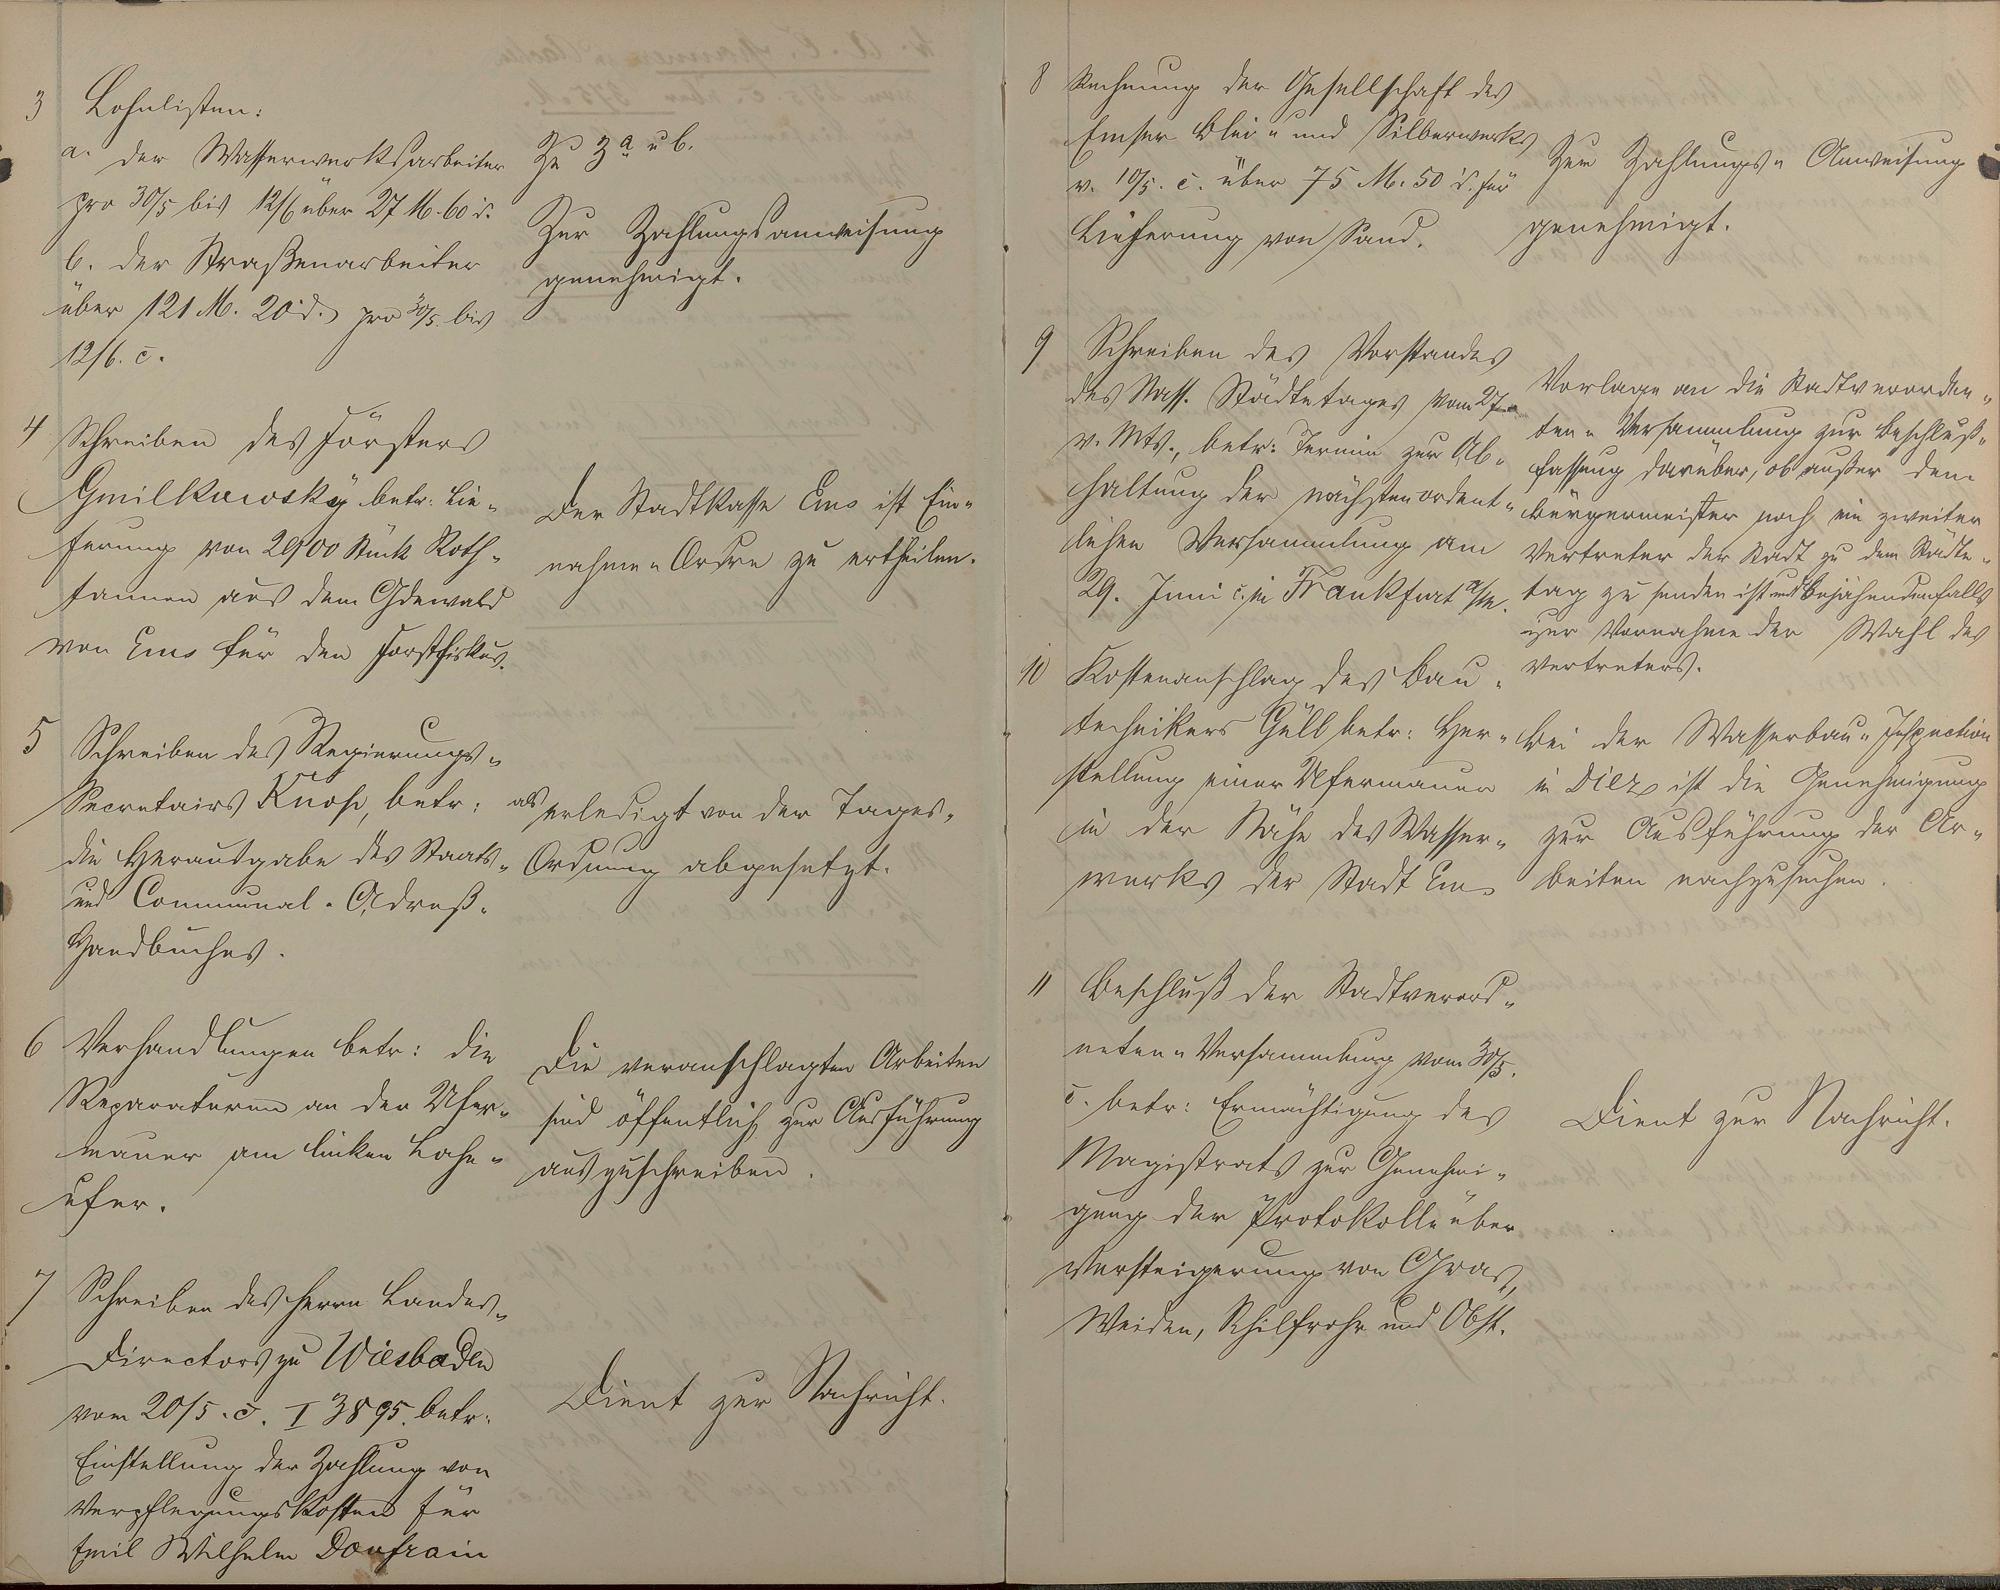 3 Lohnlisten:
a. der Wasserwerksarbeiter
pro 30/5 bis 12/6 über 27 M. 60 d.
b. der Straßenarbeiter
über 121 M. 20 d. pro 30/5. bis
12/6. c.
Zu 3 a u b.
Zur Zahlungsanweisung
genehmigt.
4 Schreiben des Försters
Gmilkowsky betr: Lie-
ferung von Stück Roth-
tannen aus dem Gdewald
von Ems für den Forstfiskus.
Der Stadtkasse Ems ist Ein-
nahme-Ordre zu ertheilen.
5 Schreiben des Regierungs-
Secretairs betr:
die Herausgabe des Staats-
und Communal-Adreß-
Handbuches.
als erledigt von der Tages-
Ordnung abgesetzt.
6 Verhandlungen betr: die
Reparaturen an der Ufer-
mauer am linken Lahn-
ufer.
Die veranschlagten Arbeiten
sind öffentlich zur Ausführung
auszuschreiben.
7 Schreiben des Herrn Landes-
Directors zu Wiesbaden
vom 20/5. c. I 3895. betr:
Einstellung der Zahlung von
Verpflegungskosten für
Emil Wilhelm Donfrain
Dient zur Nachricht.
8 Rechnung der Gesellschaft des
Emser Blei- und Silberwerks
v. 10/5. c. über 75 M. 50 d. für
Lieferung von Sand.
Zur Zahlungs-Anweisung
genehmigt.
9 Schreiben des Vorstandes
des Nass. Städtetages vom 27
v. Mts., betr: Termin zur Ab-
haltung der nächsten ordent-
lichen Versammlung am
29. Juni c. in Frankfurt a/M.
Vorlage an die Stadtverordne-
ten-Versammlung zur Beschluß-
fassung darüber, ob außer dem
Bürgermeister noch ein zweiter
Vertreter der Stadt zu dem Städte-
tag zu senden ist und bejahendenfalls
zur Vornahme der Wahl des
Vertreters.
10 Kostenanschlag des Bau-
technikers Güll betr: Her-
stellung einer Ufermauer
in der Nähe des Wasser-
werks der Stadt Ems
Bei der Wasserbau-Inspection
in Diez ist die Genehmigung
zur Ausführung der Ar-
beiten nachzusuchen.
11 Beschluß der Stadtverord-
neten-Versammlung vom 30/5.
c. betr: Ermächtigung des
Magistrats zur Genehmi-
gung der Protokolle über
Versteigerung von Gras,
Weiden, Schilfrohr und Obst.
Dient zur Nachricht.